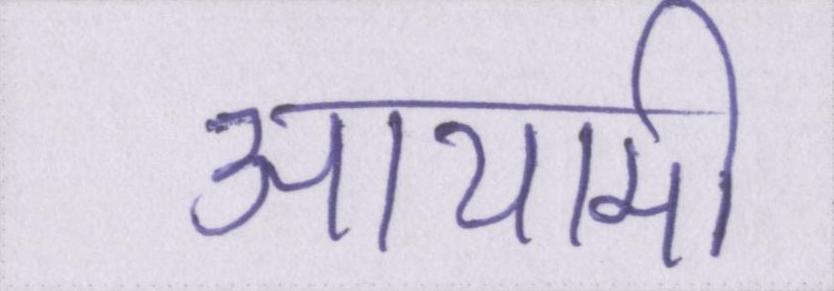 आयामी